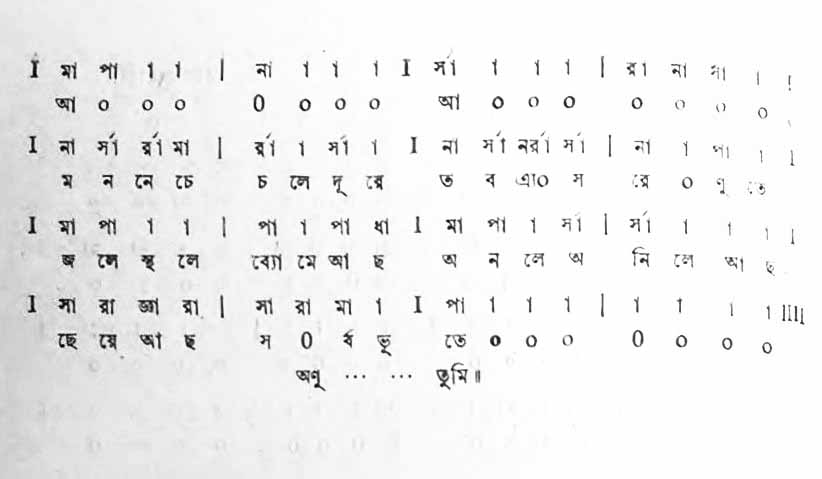 I মা পা া া | না া া া I র্সা া া া | রা না সা া I
আ ০ ০ ০ ০ ০ ০ ০ আ ০ ০ ০ ০ ০ ০ ০
I না র্সা র্রা মা | র্রা া র্সা া I না র্সা নর্রা র্সা | না া পা া I
ম ন নে চে চ লে দূ রে ত ব এা০ স রে ০ ণু তে
I মা পা া া | পা া পা ধা I মা পা া র্সা | র্সা া া া I
জ লে স্থ লে ব্যো মে আ ছ অ ন লে অ নি লে আ ছ
I সা রা জ্ঞা রা | সা রা মা া I পা া া া | া া া া IIII
ছে য়ে আ ছ স ০ র্ব ভূ তে ০ ০ ০ ০ ০ ০ ০
অণু ... ... তুমি॥